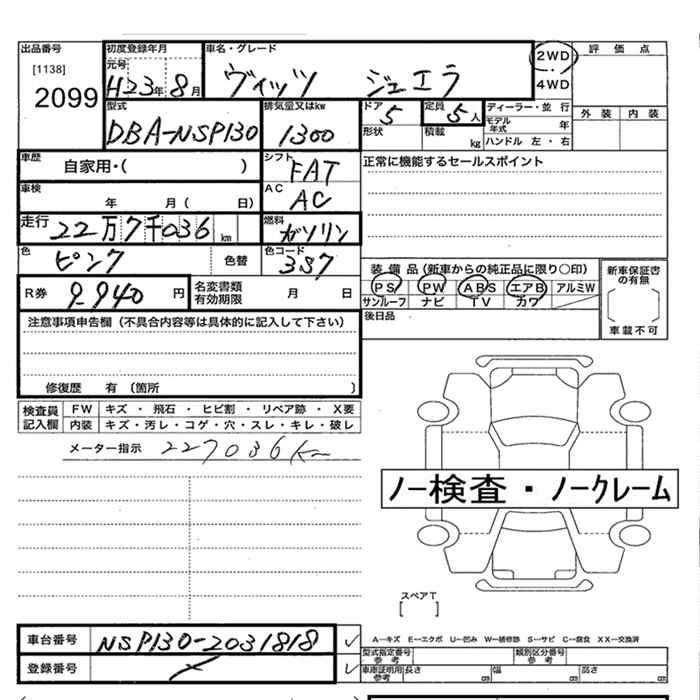 出品番号 初度登録年月 車名・グレード 2WD 評価点
[1138] 元号 H23年8月 ヴィッツ ジュエラ 4WD
2099 型式 排気量又はkw ドア 定員 ディーラー・並行 外装 内装
DBA-NSP130 1300 5 5人 モデル年式 年
形状 積載 kg ハンドル 左・右
車歴 自家用・( ) シフト FAT 正常に機能するセールスポイント
車検 年 月( 日) AC AC
走行 22万7千036km 燃料 ガソリン
色 ピンク 色替 色コード 3S7 装備品(新車からの純正品に限り〇印) 新車保証書の有無
R券 9,940円 名変書類有効期限 月 日 PS PW ABS エアB アルミW
サンルーフ ナビ TV カワ 車載不可
注意事項申告欄(不具合内容等は具体的に記入して下さい) 後日品
修復歴 有(箇所 )
検査員記入欄 FW キズ・飛石・ヒビ割・リペア跡・X要
内装 キズ・汚レ・コゲ・穴・スレ・キレ・破レ
メーター指示 227036K
ノー検査・ノークレーム
スペアT
[ ]
車台番号 NSP130-2031818 A…キズ E…エクボ U…凹み W…補修跡 S…サビ C…腐食 XX…交換済
型式指定番号 参考 類別区分番号 参考
登録番号 車庫証明用 参考 長さ cm 幅 cm 高さ cm